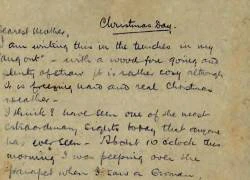 Christmas Day.
Dearest Mother,
I am writing this in the trenches in my
dugout - with a wood fire going and
plenty of straw it is rather cosy although
it is freezing hard and real Christmas
weather.
I think I have seen one of the most
extraordinary sights today that anyone
has ever seen - About 10 oclock this
morning I was peeping over the
parapet when I saw a German,